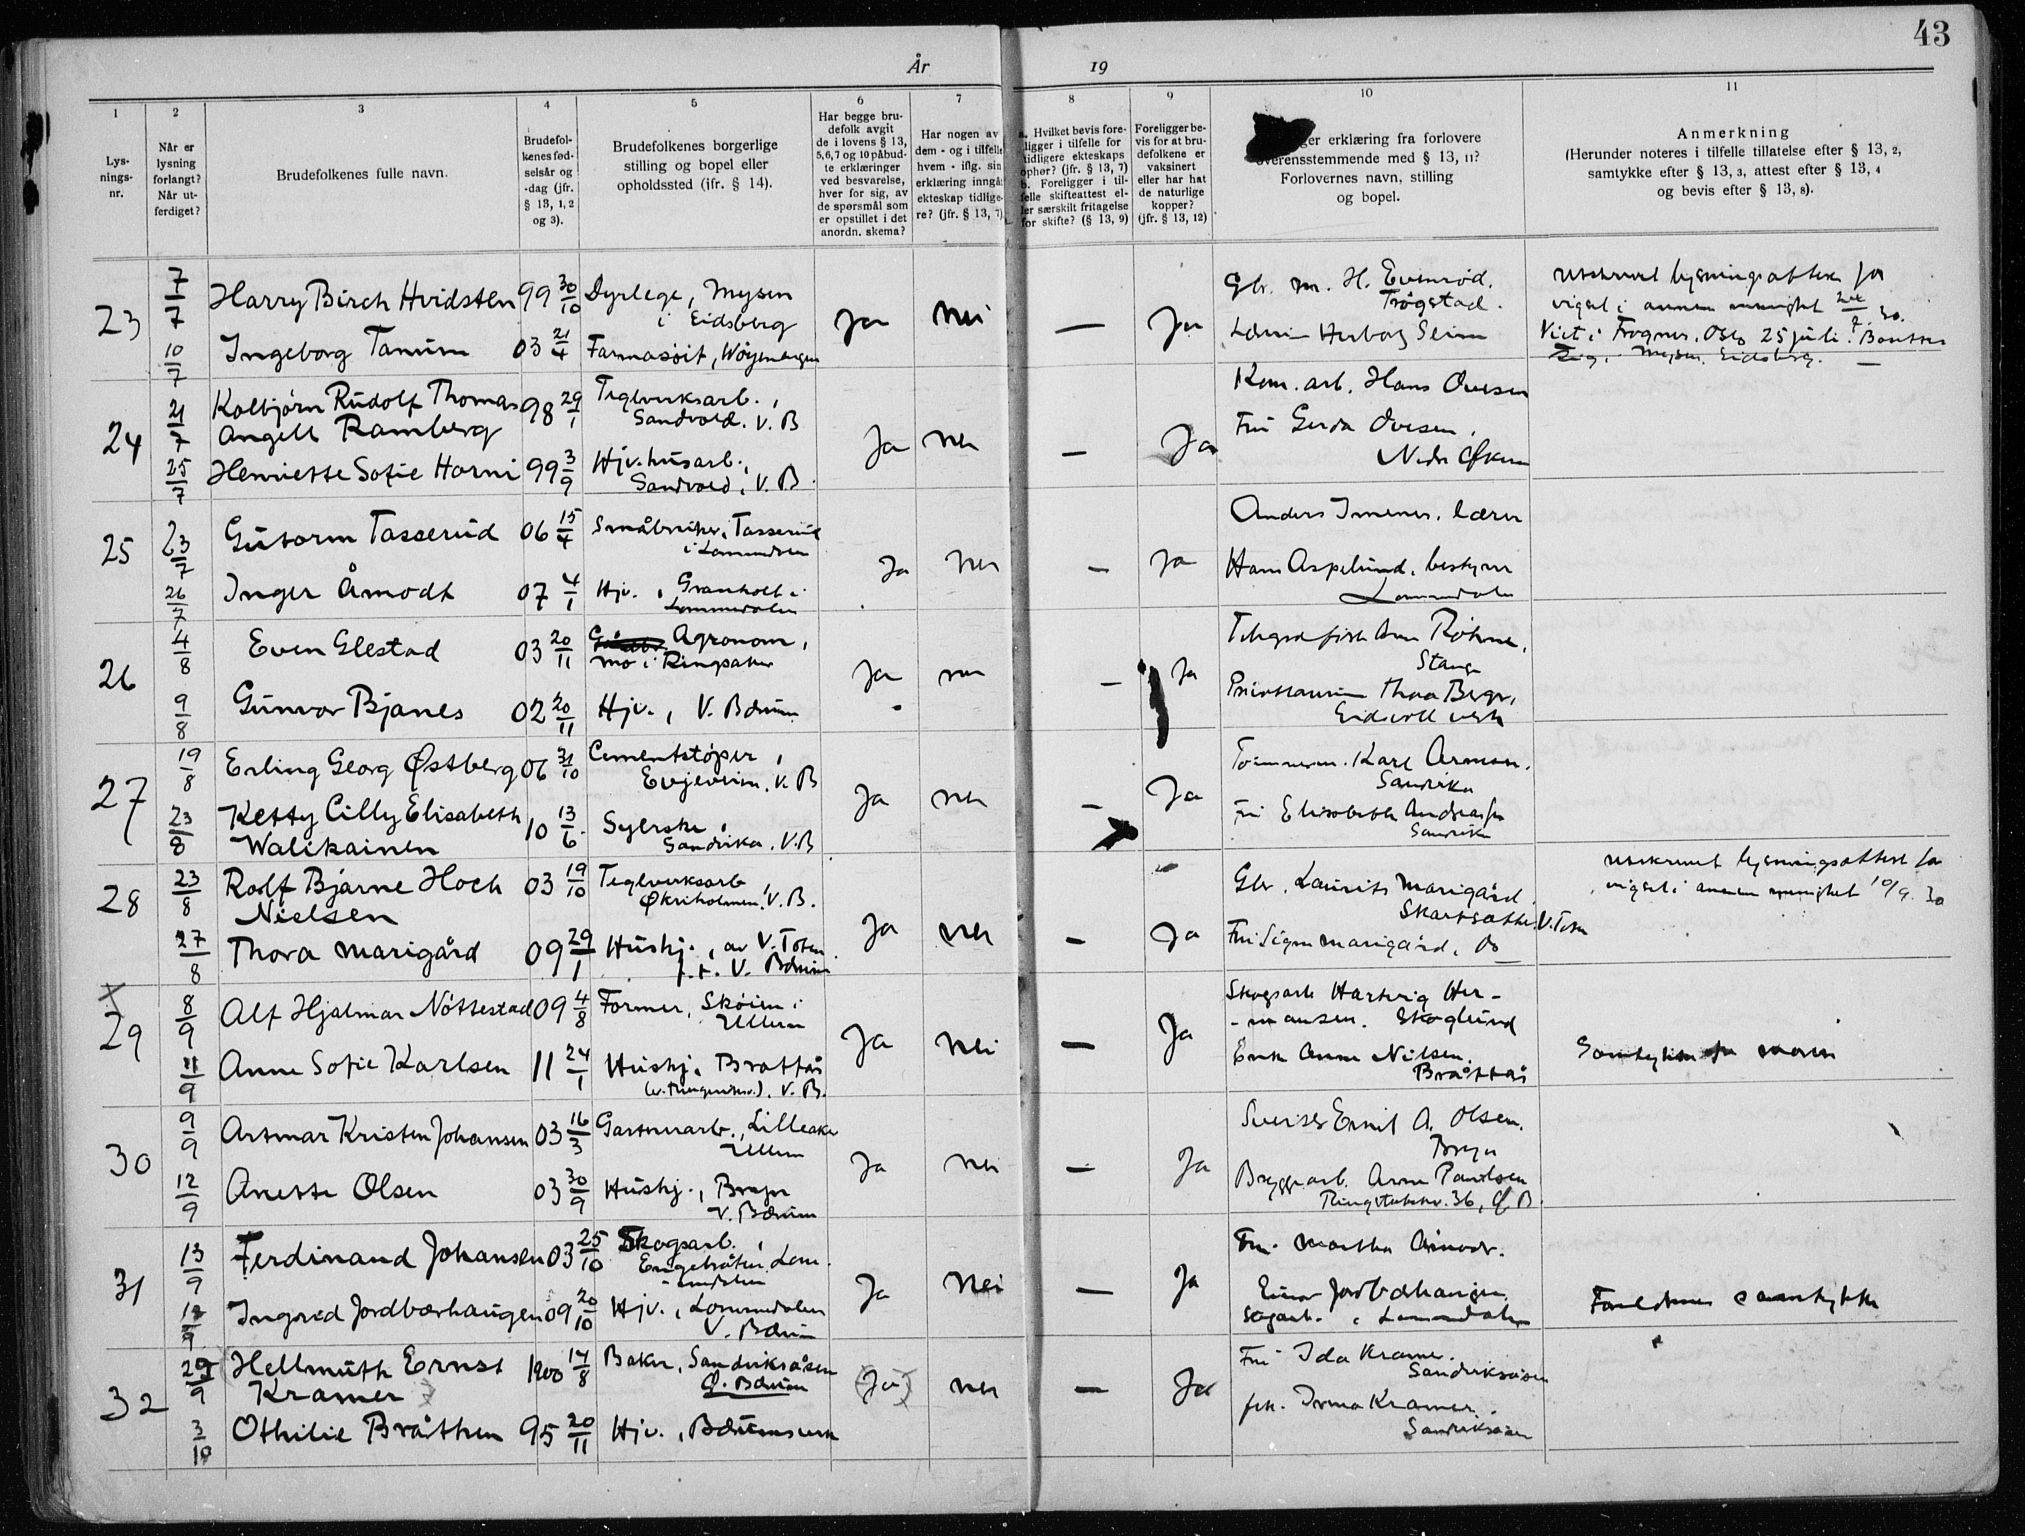 43
År 19
1
Lys-
nings-
nr.
2
Når er
lysning
forlangt?
Når ut-
ferdiget?
3
Brudefolkenes fulle navn.
4
Brudefol-
kenes fød-
selsår og
-dag (jfr.
§ 13, 1, 2
og 3).
5
Brudefolkenes borgerlige
stilling og bopel eller
opholdssted (jfr. § 14).
6
Har begge bru-
defolk avgit
de i lovens § 13,
5,6,7 og 10 påbud-
te erklæringer
ved besvarelse,
hver for sig, av
de spørsmål som
er opstillet i det
anordn. skema?
7
Har nogen av
dem - og i tilfelle
hvem - iflg. sin
erklæring inngå
ekteskap tidlige-
re? (jfr. § 13, 7)
8
a. Hvilket bevis fore-
ligger i tilfelle for
tidligere ekteskaps
ophør? (jfr. § 13, 7)
b. Foreligger i til-
felle skifteattest el-
ler særskilt fritagelse
for skifte? (§ 13, 9)
9
Foreligger be-
vis for at bru-
defolkene er
vaksinert
eller har hat
de naturlige
kopper?
(jfr. § 13, 12)
10
ger erklæring fra forlovere
overensstemmende med § 13, 11?
Forlovernes navn, stilling
og bopel.
11
Anmerkning
(Herunder noteres i tilfelle tillatelse efter § 13, 2,
samtykke efter § 13, 3, attest efter § 13, 4
og bevis efter § 13, 8).
23
7/7
Harry Birch Hvidsten 99 30/10 Dyrlege, Mysen
i Eidsberg
Ja Nei — Ja
Gbr. M. H. Evenrød.
Trøgstad.
utskrevet lysningsattest for
vigsel i annen menighet
Viet i Frogner, Oslo 25 juli.
Mysen. Eidsberg.
10/7
Ingeborg Tanum 03 21/4 Farmasøit,
24
21/7
Kolbjørn Rudolf Thomas 98 29/1 Teglverksarb.,
Angell Ramberg Sandvold. V. B
Ja Nei — Ja
Kom. arb. Hans Ovesen
Fru Gerda Ovesen.
25/7
Henriette Sofie Harni 99 3/9 Hjv. husarb.,
Sandvold, V. B.
25
23/7
Gutorm Tasserud 06 15/4 Småbruker, Tasserud
i Lommedalen
Ja Nei — Ja
Hans Aspelund, bestyrer
Lommedalen
26/7
Inger Åmodt 07 4/1 Hjv., Granholt i
Lommedalen
26
4/8
Even Glestad 03 20/11 Agronom,
Mo i Ringsaker
Ja Nei — Ja
Stange
Eidsvoll verk
9/8
Gunvor Bjanes 02 20/11 Hjv., V. Bærum
27
19/8
Erling Georg Østberg 06 31/10 Cementstøper,
Evjeveien. V. B
Ja Nei — Ja
Tømmerm. Karl
Sandvika
Fru Elisabeth
Sandvika
23/8
Ketty Cilly Elisabeth 10 13/6 Syerske,
Walikainen Sandvika. V. B
28
23/8
Rolf Bjarne Hoch 03 19/10 Teglverksarb.
Nielsen Økriholmen, V. B.
Ja Nei — Ja
Gbr. Laurits Marigård.
V. Toten
Fru Signe Marigård, do
utskrevet lysningsattest for
vigsel i annen menighet 10/9. 30
27/8
Thora Marigård 09 29/1 Hushj., av V. Toten
p. t. V. Bærum
X
29
8/9
Alf Hjalmar Nøttestad 09 4/8 Former, Skøien i
Ullern
Ja Nei — Ja
Skogsarb Hartvig Her-
-mansen. Skoglund
Enke Anne Nilsen.
Bråttås
Samtykke fra moren
11/9
Anne Sofie Karlsen 11 24/1 Hushj. Brattås
V. B.
30
9/9
Artmar Kristen Johansen 03 16/3 Gartnerarb., Lilleaker
Ullern
Ja Nei — Ja
Sveiser Emil A. Olsen.
Bryn
Bryggearb. Arne Paulsen
36, Ø. B.
12/9
Anette Olsen 03 30/9 Hushj., Bryn
V. Bærum
31
13/9
Ferdinand Johansen 03 25/10 Skogsarb.,
Engebråten, Lom-
-medalen
Ja Nei — Ja
Fru Martha Åmodt.
Einar Jordbærhaugen,
sagarb., Lommedalen
Foreldrenes samtykke
Ingrid Jordbærhaugen 09 20/10 Hjv., Lommedalen
V. Bærum
32
29/9
Hellmuth Ernst 1900 14/8 Baker, Sandviksåsen
Kramer Ø. Bærum
(Ja) Nei — Ja
Fru Ida Kramer.
Sandviksåsen
frk. Irma Kramer.
Sandviksåsen
3/10
Othilie Bråthen 95 20/11 Hjv., Bærumsverk